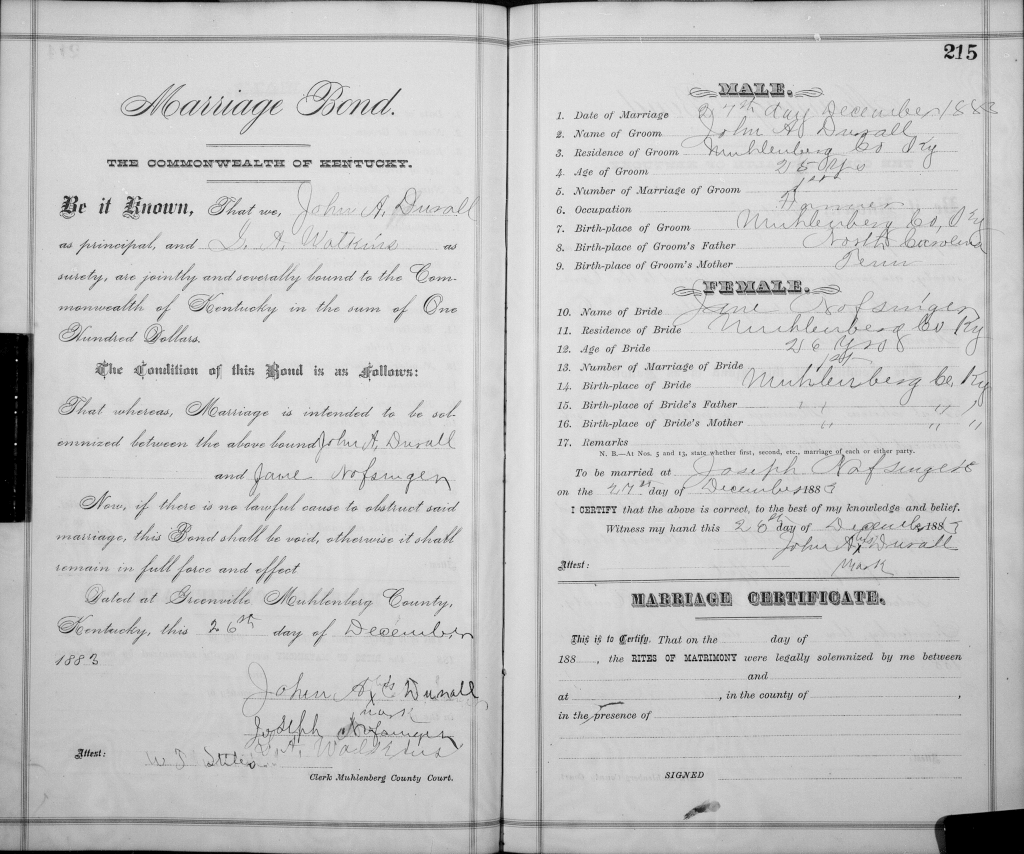 Marriage Bond.
THE COMMONWEALTH OF KENTUCKY.
Be it Known, That we, John A. Duvall
as principal, and G. A. Watkins as
surety, are jointly and severally bound to the Com-
monwealth of Kentucky in the sum of One
Hundred Dollars.
The Condition of this Bond is as Follows:
That whereas, Marriage is intended to be sol-
emnized between the above bound John A, Duvall
and Jane Nofsinger
Now, if there is no lawful cause to obstruct said
marriage, this Bond shall be void, otherwise it shall
remain in full force and effect
Dated at Greenville Muhlenberg County,
Kentucky, this 26th day of December
1883
John A x Duvall
mark
Joseph Nofsinger
G. A. Watkins
Attest:
Clerk Muhlenberg County Court.
215
MALE.
1. Date of Marriage 27th day December 1883
2. Name of Groom John A. Duvall
3. Residence of Groom Muhlenberg Co Ky
4. Age of Groom 25 Yrs
5. Number of Marriage of Groom 1st
6. Occupation Farmer
7. Birth-place of Groom Muhlenberg Co, Ky
8. Birth-place of Groom's Father North Carolina
9. Birth-place of Groom's Mother Tenn
FEMALE.
10. Name of Bride Jane Nofsinger
11. Residence of Bride Muhlenberg Co Ky
12. Age of Bride 26 Yrs
13. Number of Marriage of Bride 1st
14. Birth-place of Bride Muhlenberg Co, Ky
15. Birth-place of Bride's Father " " "
16. Birth-place of Bride's Mother " " "
17. Remarks
N. B.—At Nos. 5 and 13, state whether first, second, etc., marriage of each or either party.
To be married at Joseph Nofsingers
on the 27th day of December 1883
I CERTIFY that the above is correct, to the best of my knowledge and belief.
Witness my hand this 26th day of December 1883
John A x his Duvall
Attest: mark
MARRIAGE CERTIFICATE.
This is to Certify, That on the day of
188 , the RITES OF MATRIMONY were legally solemnized by me between
and
at , in the county of ,
in the presence of
SIGNED